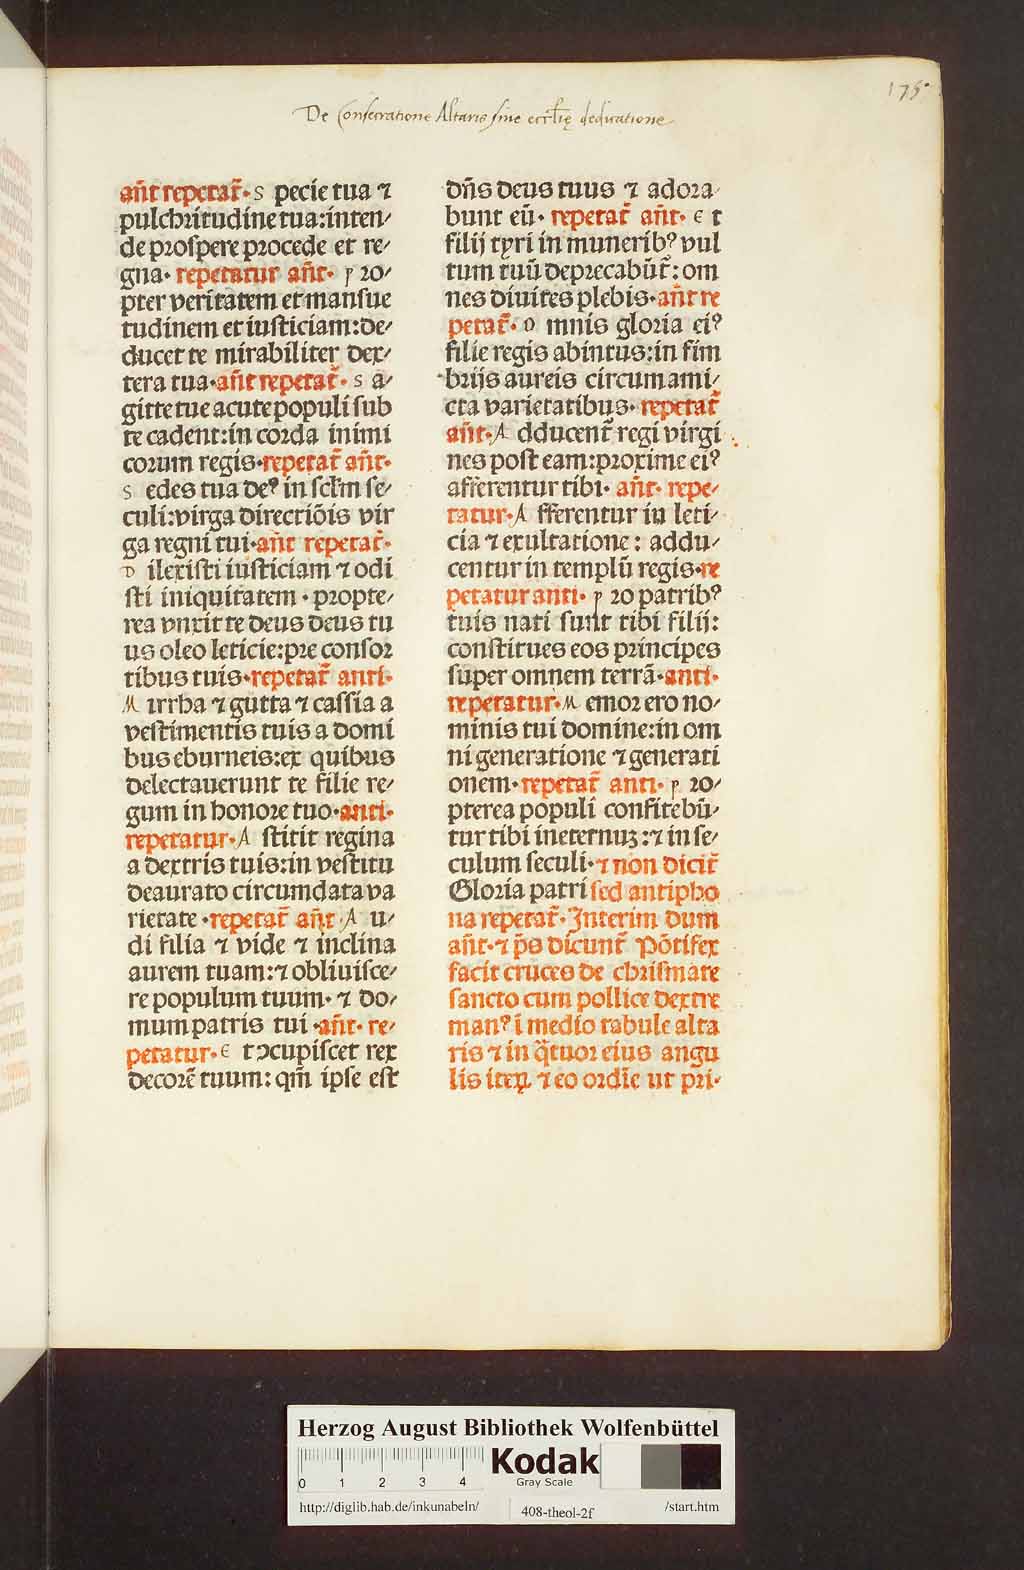 175.
De Consecratione Altaris sine eccl̄ię dedicatione
an̄t repetat᷑. S pecie tua ⁊
pulchritudine tua:inten⸗
de prospere procede et re⸗
gna. repetatur an̄t. p ro⸗
pter veritatem et mansue
tudinem et iusticiam:de⸗
ducet te mirabiliter dex⸗
tera tua.an̄t repetat᷑. S a⸗
gitte tue acute populi sub
te cadent:in corda inimi
corum regis.repetat᷑ an̄t.
S edes tua deꝰ in scl̄m se⸗
culi:virga directiōis vir
ga regni tui.an̄t repetat᷑.
D ilexisti iusticiam ⁊ odi
sti iniquitatem . propte⸗
rea vnxit te deus deus tu
us oleo leticie:pre consor
tibus tuis.repetat᷑ anti.
M irrha ⁊ gutta ⁊ cassia a
vestimentis tuis a domi
bus eburneis:ex quibus
delectauerunt te filie re⸗
gum in honore tuo.anti.
repetatur.A stitit regina
a dextris tuis:in vestitu
deaurato circumdata va
rietate .repetat᷑ an̄t.A u⸗
di filia ⁊ vide ⁊ inclina
aurem tuam:⁊ obliuisce⸗
re populum tuum. ⁊ do⸗
mum patris tui .an̄t. re⸗
petatur. E t ↄcupiscet rex
decorē tuum: qm̄ ipse est
dn̄s deus tuus ⁊ adora⸗
bunt eū. repetat᷑ an̄t. E t
filij tyri in muneribꝰ vul
tum tuū deprecabūt᷑: om
nes diuites plebis.an̄t re
petat᷑. O mnis gloria eiꝰ
filie regis abintus:in fim
brijs aureis circumami⸗
cta varietatibus. repetat᷑
an̄t.A dducent᷑ regi virgi
nes post eam:proxime eiꝰ
afferentur tibi. an̄t. repe⸗
tatur.A fferentur in leti⸗
cia ⁊ exultatione : addu⸗
centur in templū regis.re
petatur anti. p ro patribꝰ
tuis nati sunt tibi filij:
constitues eos principes
super omnem terrā.anti.
repetatur.M emor ero no⸗
minis tui domine:in om
ni generatione ⁊ generati
onem.repetat᷑ anti. p ro⸗
pterea populi confitebū⸗
tur tibi ineternuꝫ:⁊ in se⸗
culum seculi.⁊ non dicit᷑
Gloria patri sed antipho
na repetat᷑. Interim dum
an̄t. ⁊ p̄s dicunt᷑ Pōtifex
facit cruces de chrismate
sancto cum pollice dextre
manꝰ ī medio tabule alta
ris ⁊ in q̄tuor eius angu
lis iteꝝ ⁊ eo ordīe ut pri⸗
Herzog August Bibliothek Wolfenbüttel
0 1 2 3 4
Kodak
Gray Scale
http://diglib.hab.de/inkunabeln/ 408-theol-2f /start.htm